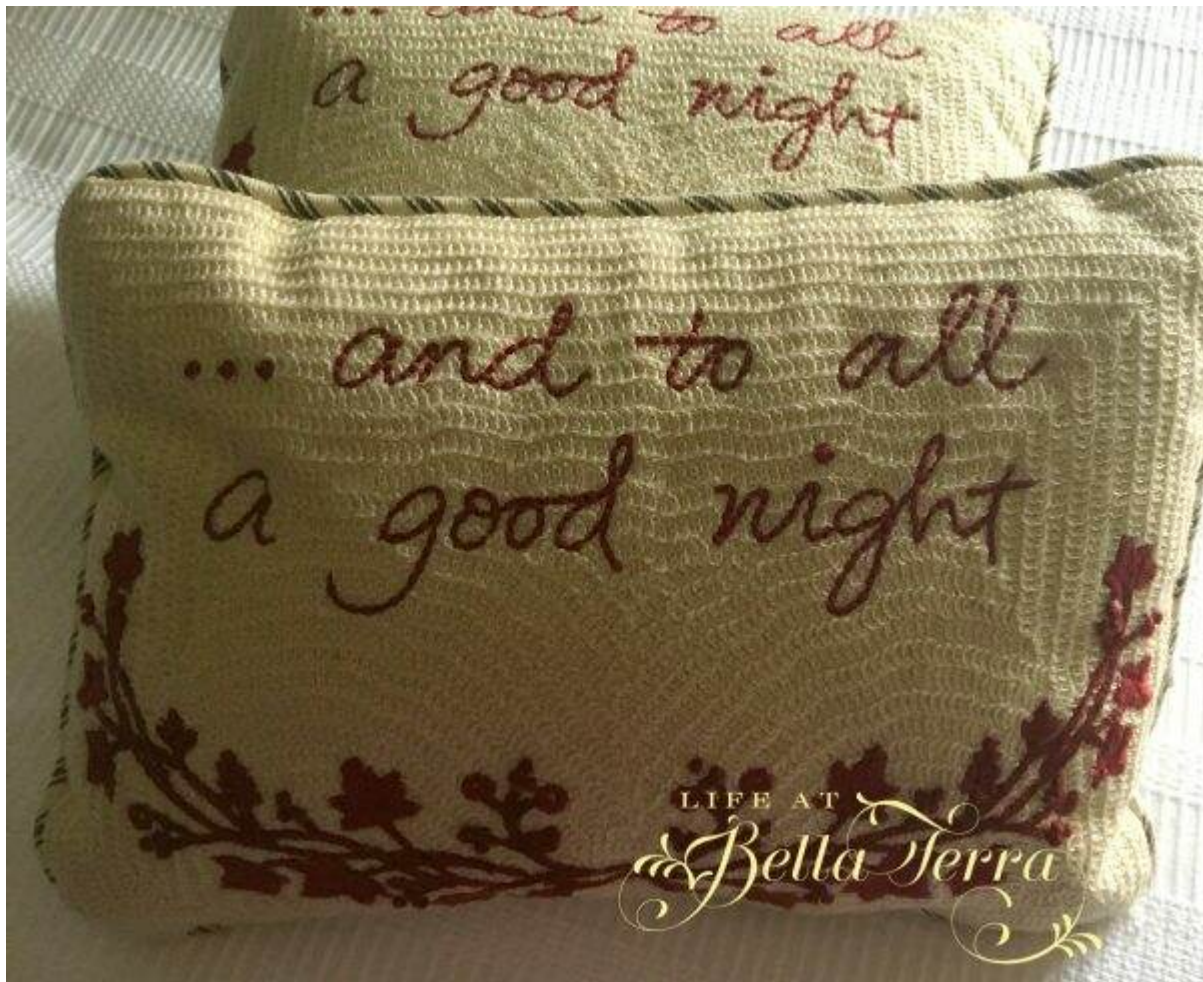 ... and to all
a good night
... and to all
a good night
LIFE AT
Bella Terra